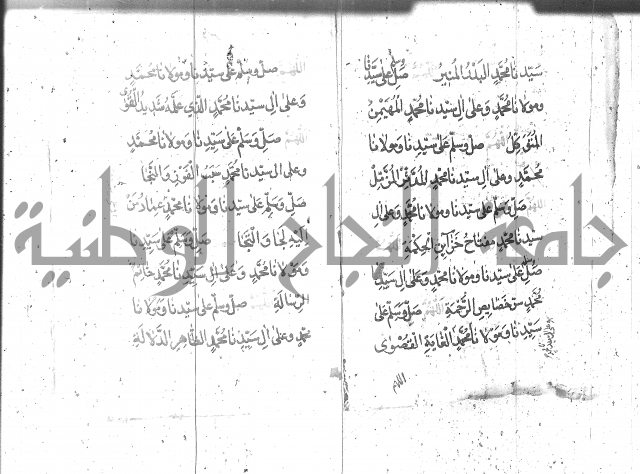 سيدنا محمد البدر المنير اللهم صل وسلم على سيدنا
ومولانا محمد وعلى ال سيدنا محمد المهيمن
المتوكل اللهم صل وسلم على سيدنا ومولانا
محمد وعلى ال سيدنا محمد المدثر المزمل
اللهم صل وسلم على سيدنا ومولانا محمد وعلى ال
سيدنا محمد مفتاح خزاين الحكمة اللهم
صل على سيدنا ومولانا محمد وعلى ال سيدنا
محمد خصايص الرحمة اللهم صل وسلم على
سيدنا ومولانا محمد الغاية القصوى
اللهم
اللهم صل وسلم على سيدنا ومولانا محمد
وعلى ال سيدنا محمد الذي علمه شديد القوى
اللهم صل وسلم على سيدنا ومولانا محمد
وعلى ال سيدنا محمد الفوز والنجا
صل وسلم على سيدنا ومولانا محمد عباد من
اليه لجا والتجا صل وسلم على سيدنا
ومولانا محمد وعلى ال سيدنا محمد خاتم
الرسالة اللهم صل وسلم على سيدنا ومولانا
محمد وعلى ال سيدنا محمد الظاهر الدلالة
جامعة النجاح الوطنية